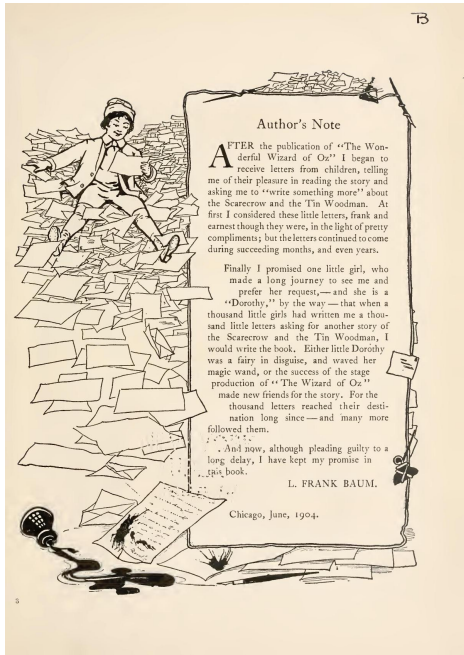 B
Author's Note
AFTER the publication of "The Won-
derful Wizard of Oz" I began to
receive letters from children, telling
me of their pleasure in reading the story and
asking me to "write something more" about
the Scarecrow and the Tin Woodman. At
first I considered these little letters, frank and
earnest though they were, in the light of pretty
compliments; but the letters continued to come
during succeeding months, and even years.
Finally I promised one little girl, who
made a long journey to see me and
prefer her request,—and she is a
"Dorothy," by the way—that when a
thousand little girls had written me a thou-
sand little letters asking for another story of
the Scarecrow and the Tin Woodman, I
would write the book. Either little Dorothy
was a fairy in disguise, and waved her
magic wand, or the success of the stage
production of "The Wizard of Oz"
made new friends for the story. For the
thousand letters reached their desti-
nation long since—and many more
followed them.
And now, although pleading guilty to a
long delay, I have kept my promise in
this book.
L. FRANK BAUM.
Chicago, June, 1904.